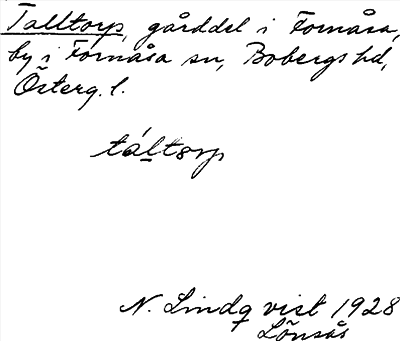 Talltorp, gårddel i Fornåsa,
by i Fornåsa sn, Bobergs hd,
Österg. l.
táltorp
N. Lindqvist 1928
Lönsås